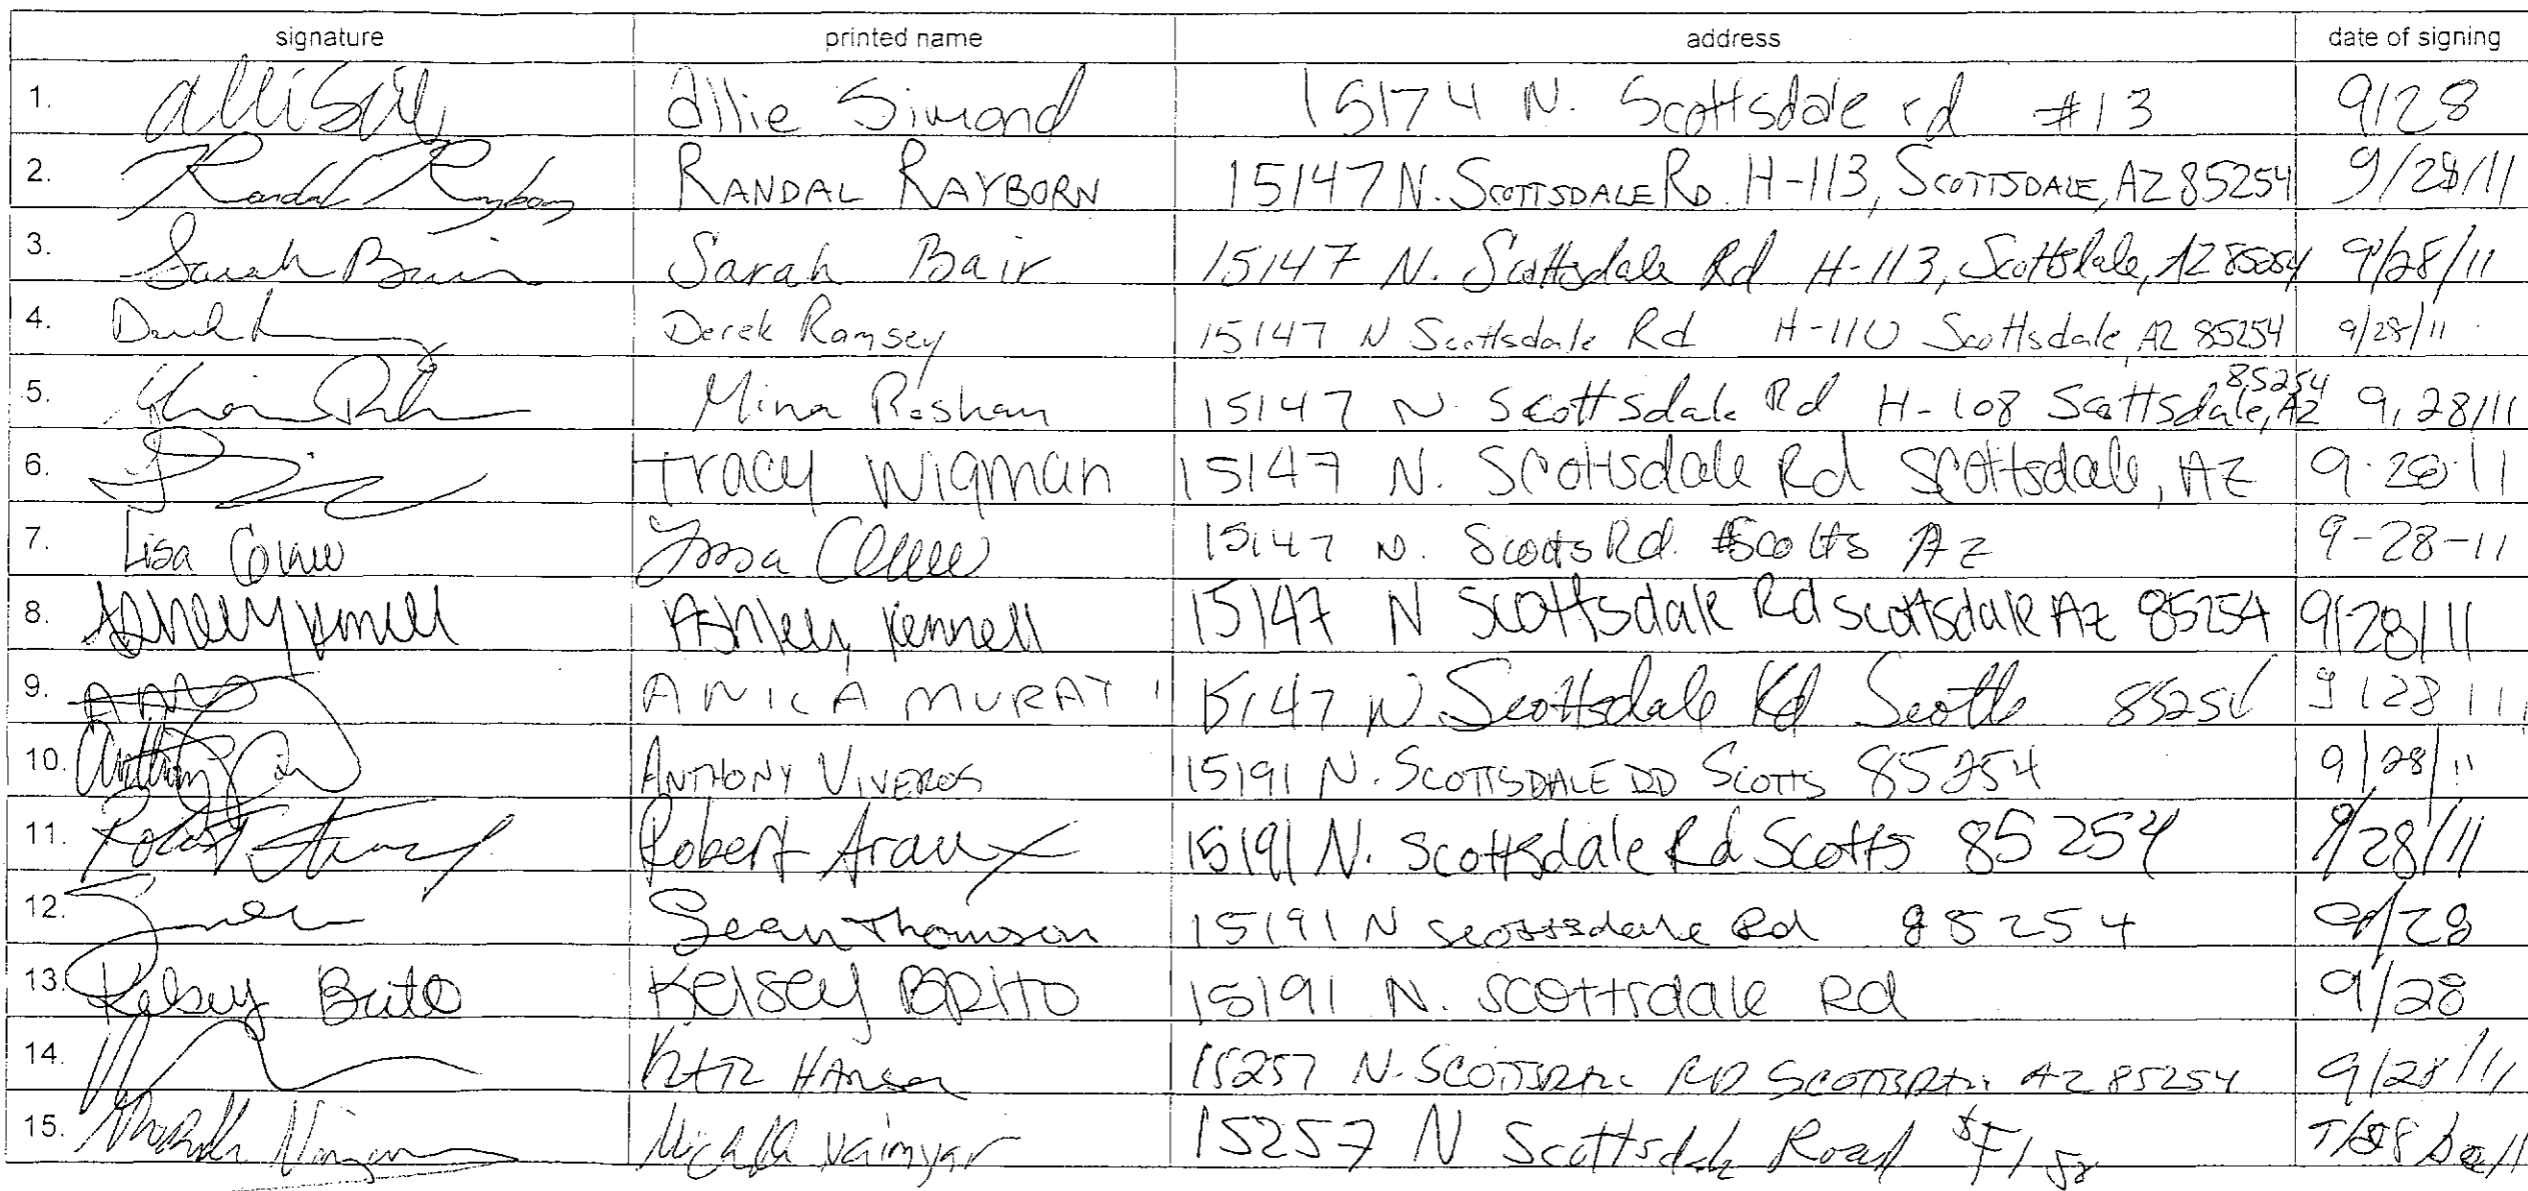 signature printed name address date of signing
1. Allie Simond 15174 N. Scottsdale rd #13 9/28
2. Randal Rayborn RANDAL RAYBORN 15147 N. SCOTTSDALE RD. H-113, SCOTTSDALE, AZ 85254 9/28/11
3. Sarah Bair Sarah Bair 15147 N. Scottsdale Rd H-113, Scottsdale, AZ 85254 9/28/11
4. Derek Ramsey 15147 N Scottsdale Rd H-110 Scottsdale, AZ 85254 9/28/11
5. Mina Roshan 15147 N. Scottsdale Rd H-108 Scottsdale, AZ 85254 9/28/11
6. Tracy Wigman 15147 N. Scottsdale Rd Scottsdale, AZ 9.28.11
7. Lisa 15147 N. Scotts Rd. Scotts AZ 9-28-11
8. Ashley Kennell Ashley Kennell 15147 N Scottsdale Rd Scottsdale AZ 85254 9/28/11
9. ANICA MURAT 15147 N. Scottsdale Rd 9/28/11
10. Anthony ANTHONY VIVEROS 15191 N. SCOTTSDALE RD SCOTTS 85254 9/28/11
11. Robert Robert Araux 15191 N. Scottsdale Rd Scotts 85254 9/28/11
12. Sean Thomson 15191 N Scottsdale Rd 85254 9/28
13. Kelsey Brito Kelsey BRITO 15191 N. Scottsdale Rd 9/28
14. Hansen 15257 N. SCOTTSDALE RD SCOTTSDALE AZ 85254 9/28/11
15. 15257 N Scottsdale Road